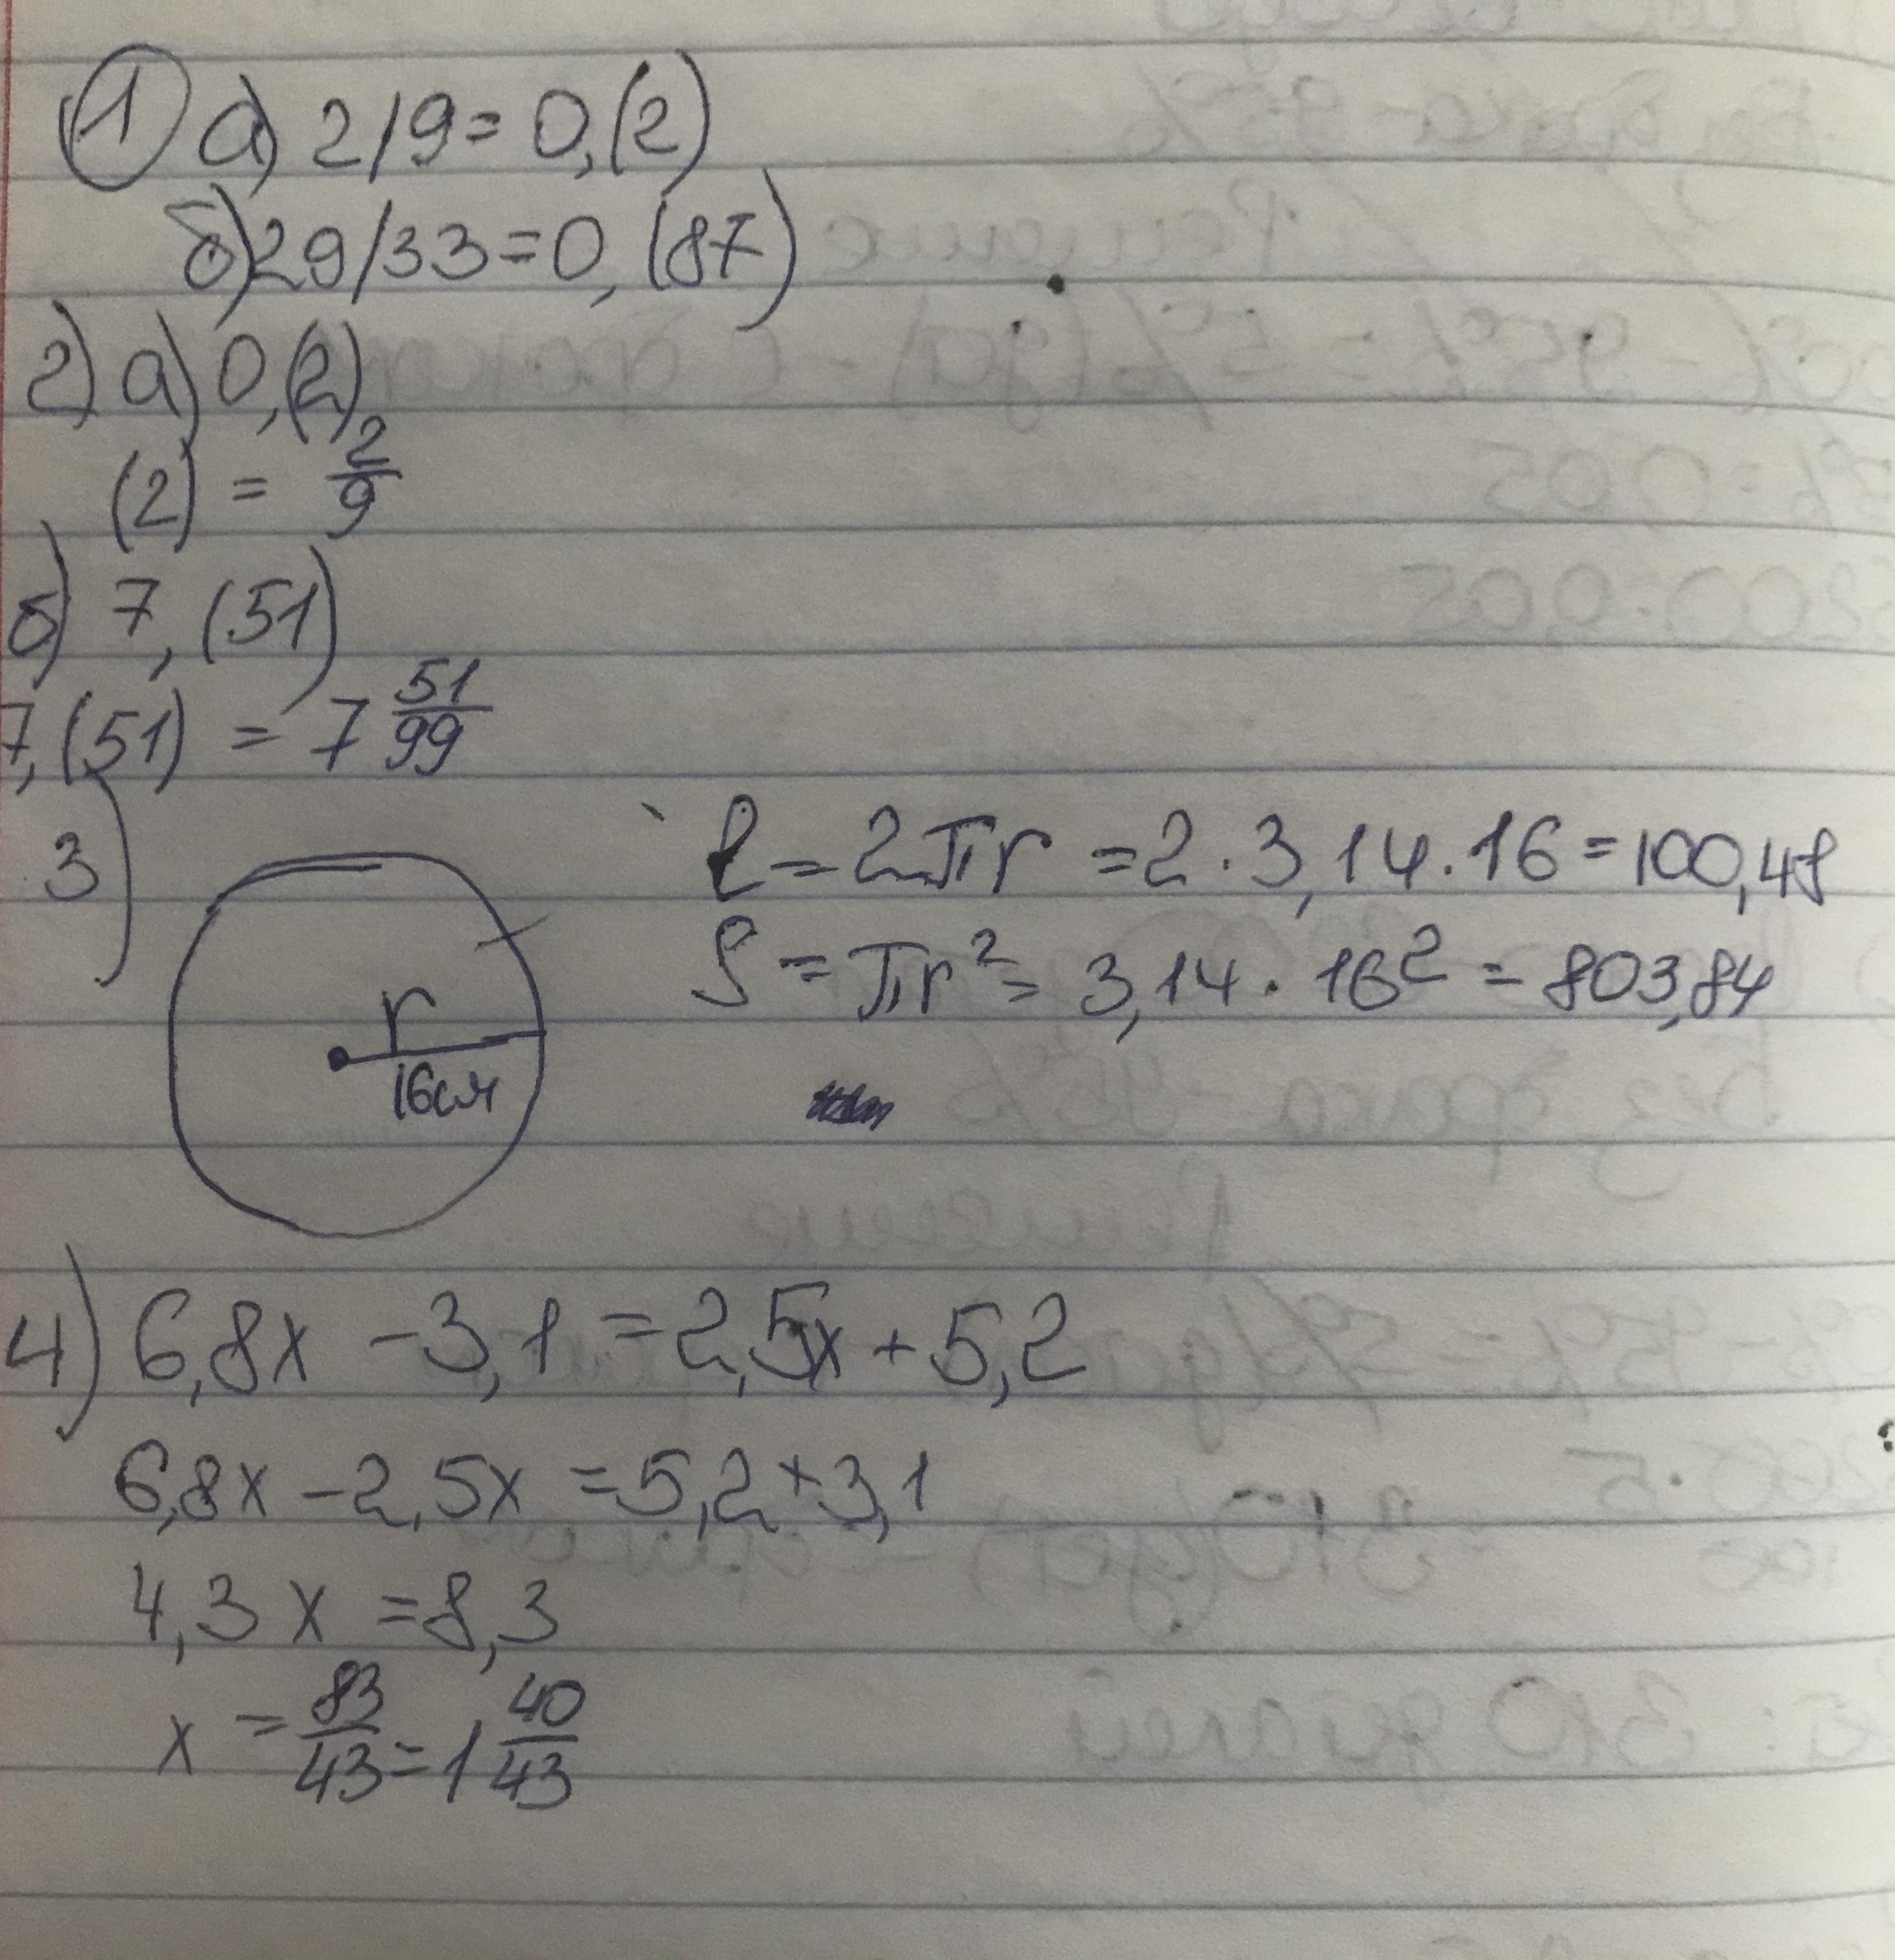 1 а) 2/9 = 0,(2)
б) 29/33 = 0,(87)
2) а) 0,(2)
(2) = 2/9
б) 7,(51)
7,(51) = 7 51/99
3)
ℓ = 2πr = 2 · 3,14 · 16 = 100,48
S = πr² = 3,14 · 16² = 803,84
r
16см
4) 6,8x - 3,1 = 2,5x + 5,2
6,8x - 2,5x = 5,2 + 3,1
4,3x = 8,3
x = 83/43 = 1 40/43